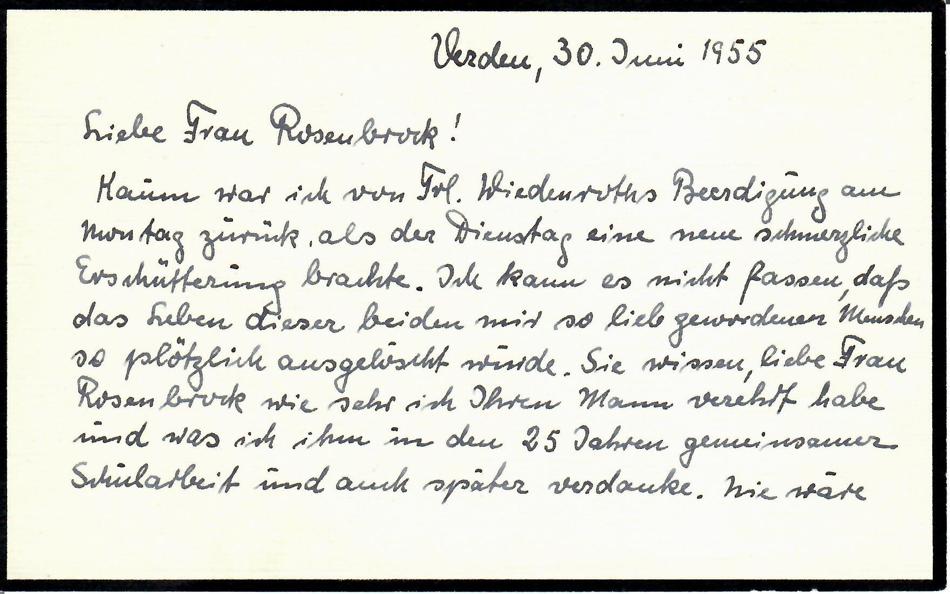 Verden, 30. Juni 1955
Liebe Frau Rosenbrock!
Kaum war ich von Frl. Wiedenroths Beerdigung am
Montag zurück, als der Dienstag eine neue schmerzliche
Erschütterung brachte. Ich kann es nicht fassen, daß
das Leben dieser beiden mir so lieb gewordenen Menschen
so plötzlich ausgelöscht wurde. Sie wissen, liebe Frau
Rosenbrock wie sehr ich Ihren Mann verehrt habe
und was ich ihm in den 25 Jahren gemeinsamer
Schularbeit und auch später verdanke. Nie wäre